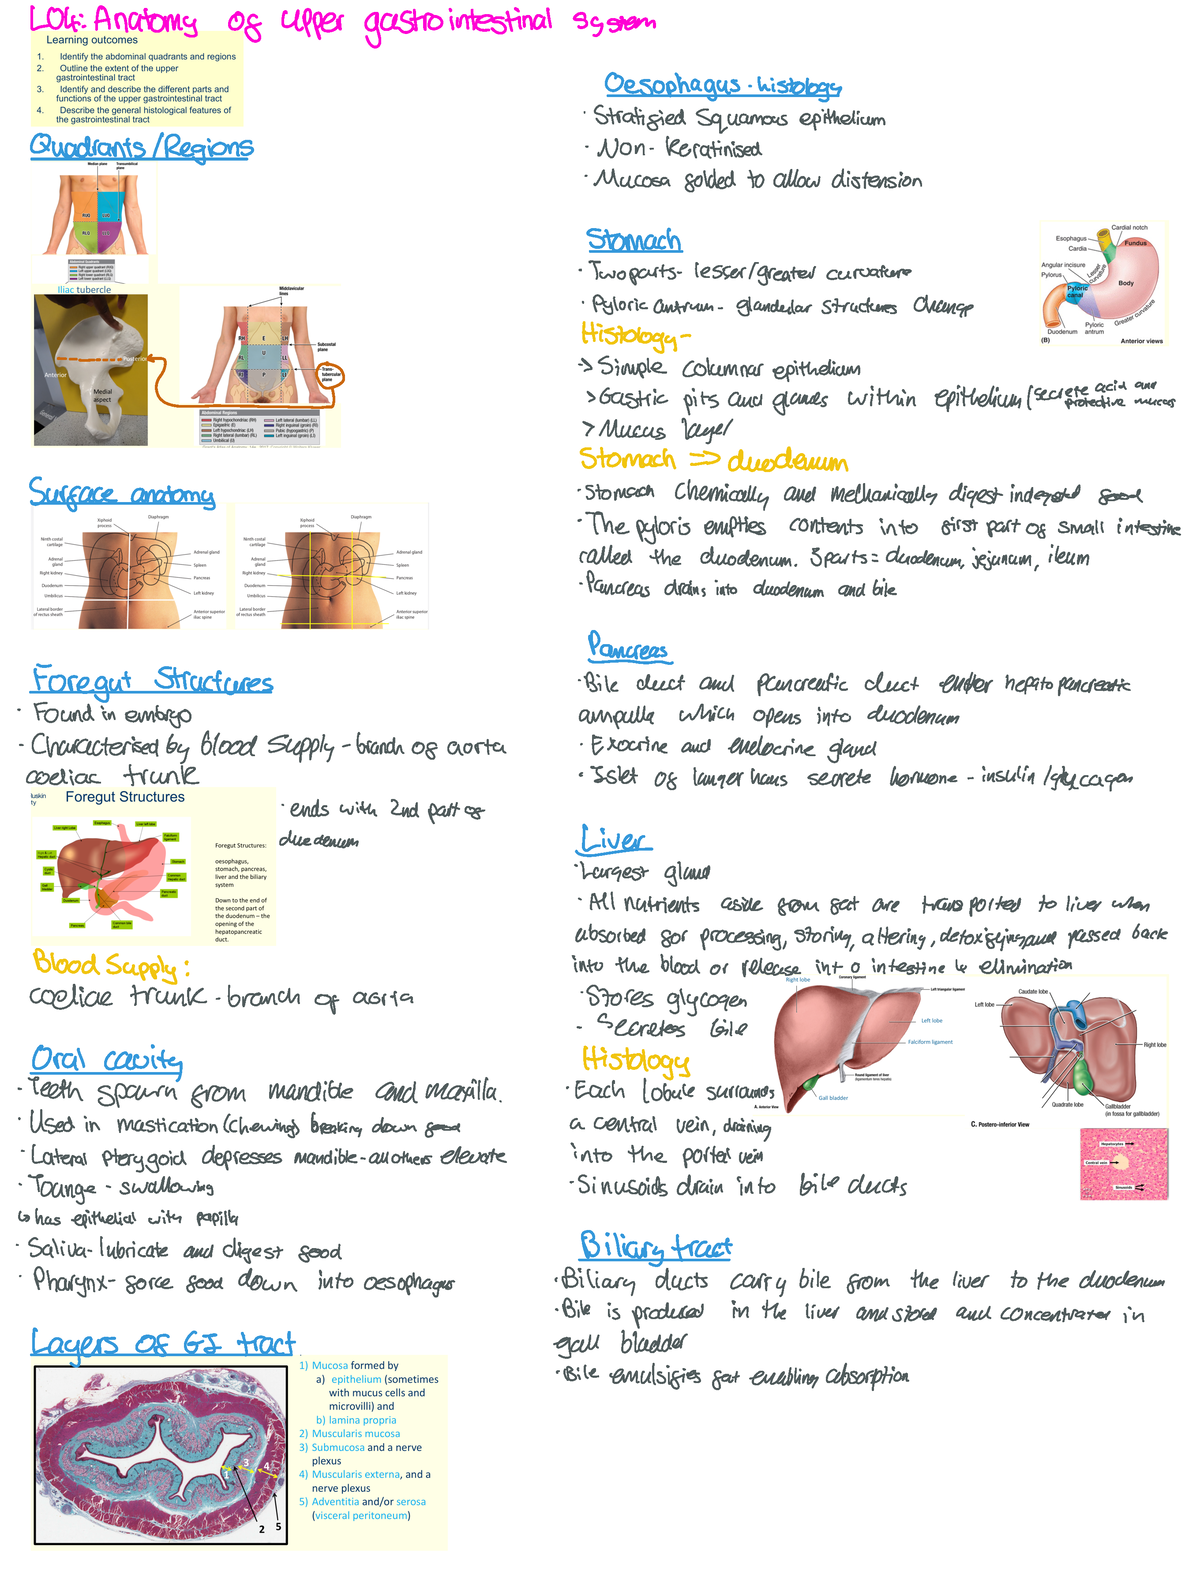 LO4: Anatomy of upper gastrointestinal system
Learning outcomes
1. Identify the abdominal quadrants and regions
2. Outline the extent of the upper
gastrointestinal tract
3. Identify and describe the different parts and
functions of the upper gastrointestinal tract
4. Describe the general histological features of
the gastrointestinal tract
Quadrants/Regions
Median plane
Transumbilical plane
RUQ
LUQ
RLQ
Iliac tubercle
Posterior
Anterior
Medial
aspect
Midclavicular
lines
RH E LH
Subcostal
plane
RL U LL
Trans-
tubercular
plane
P
Abdominal Regions
Right hypochondriac (RH)
Epigastric (E)
Left hypochondriac (LH)
Right lateral (lumbar) (RL)
Umbilical (U)
Left lateral (lumbar) (LL)
Right inguinal (groin) (RI)
Pubic (hypogastric) (P)
Left inguinal (groin) (LI)
Surface anatomy
Xiphoid
process
Diaphragm
Ninth costal
cartilage
Adrenal gland
Adrenal
gland
Spleen
Right kidney
Pancreas
Duodenum
Left kidney
Umbilicus
Lateral border
of rectus sheath
Anterior superior
iliac spine
Xiphoid
process
Diaphragm
Ninth costal
cartilage
Adrenal gland
Adrenal
gland
Spleen
Right kidney
Pancreas
Duodenum
Left kidney
Umbilicus
Lateral border
of rectus sheath
Anterior superior
iliac spine
Foregut Structures
· Found in embryo
- Characterised by blood supply - branch of aorta
coeliac trunk
Foregut Structures
Foregut Structures:
oesophagus,
stomach, pancreas,
liver and the biliary
system
Down to the end of
the second part of
the duodenum – the
opening of the
hepatopancreatic
duct.
· ends with 2nd part of
duedenum
Blood Supply:
coeliac trunk - branch of aorta
Oral cavity
- Teeth spawn from mandible and maxilla.
· Used in mastication (chewing) breaking down food
· Lateral pterygoid depresses mandible - all others elevate
· Tounge - swallowing
↳ has epithelial with papilla
· Saliva - lubricate and digest food
· Pharynx - force food down into oesophagus
Layers of GI tract
1
3
4
2 5
1) Mucosa formed by
a) epithelium (sometimes
with mucus cells and
microvilli) and
b) lamina propria
2) Muscularis mucosa
3) Submucosa and a nerve
plexus
4) Muscularis externa, and a
nerve plexus
5) Adventitia and/or serosa
(visceral peritoneum)
Oesophagus - histology
· Stratified Squamous epithelium
· Non - Keratinised
· Mucosa folded to allow distension
Stomach
· Two parts - lesser/greater curvature
· Pyloric antrum - glandular structures change
Histology -
-> Simple columnar epithelium
> Gastric pits and glands within epithelium (secrete acid and
protective mucus
> Mucus layer
Cardial notch
Esophagus
Fundus
Cardia
Angular incisure
Lesser curvature
Pylorus
Body
Pyloric
canal
Greater curvature
Pyloric
antrum
Duodenum
(B)
Anterior views
Stomach => duodenum
· Stomach chemically and mechanically digest food
· The pyloris empties contents into first part of small intestine
called the duodenum. 3 parts = duodenum, jejunum, ileum
· Pancreas drains into duodenum and bile
Pancreas
· Bile duct and pancreatic duct enter hepatopancreatic
ampulla which opens into duodenum
· Exocrine and endocrine gland
· Islet of langerhans secrete hormone - insulin/glycagon
Liver
· Largest gland
· All nutrients aside from fat are transported to liver when
absorbed for processing, storing, altering, detoxifying and passed back
into the blood or release into intestine 4 elimination
· Stores glycogen
- Secretes bile
Right lobe
Coronary ligament
Left triangular ligament
Left lobe
Falciform ligament
Round ligament of liver
(ligamentum teres hepatis)
Gall bladder
A. Anterior View
Caudate lobe
Left lobe
Right lobe
Quadrate lobe
Gallbladder
(in fossa for gallbladder)
C. Postero-inferior View
Histology
· Each lobule surrounds
a central vein, draining
into the portal vein
- Sinusoids drain into bile ducts
Hepatocytes
Central vein
Sinusoids
Biliary tract
· Biliary ducts carry bile from the liver to the duodenum
· Bile is produced in the liver and stored and concentrated in
gall bladder
· Bile emulsifies fat enabling absorption